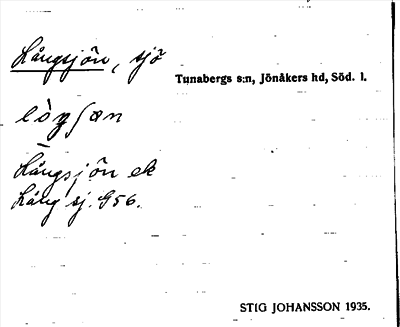 Långsjön, sjö
Tunabergs s:n, Jönåkers hd, Söd. l.
Långsjön ek
Lång sj. G56.
STIG JOHANSSON 1935.